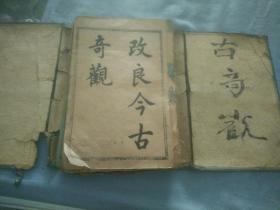 改良今古
奇觀
古奇觀